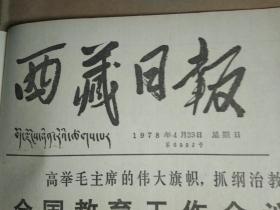 西藏日报
བོད་ལྗོངས་ཉིན་རེའི་ཚགས་པར
1978年4月23日 星期日
高举毛主席的伟大旗帜，抓纲治教
全国教育工作会议